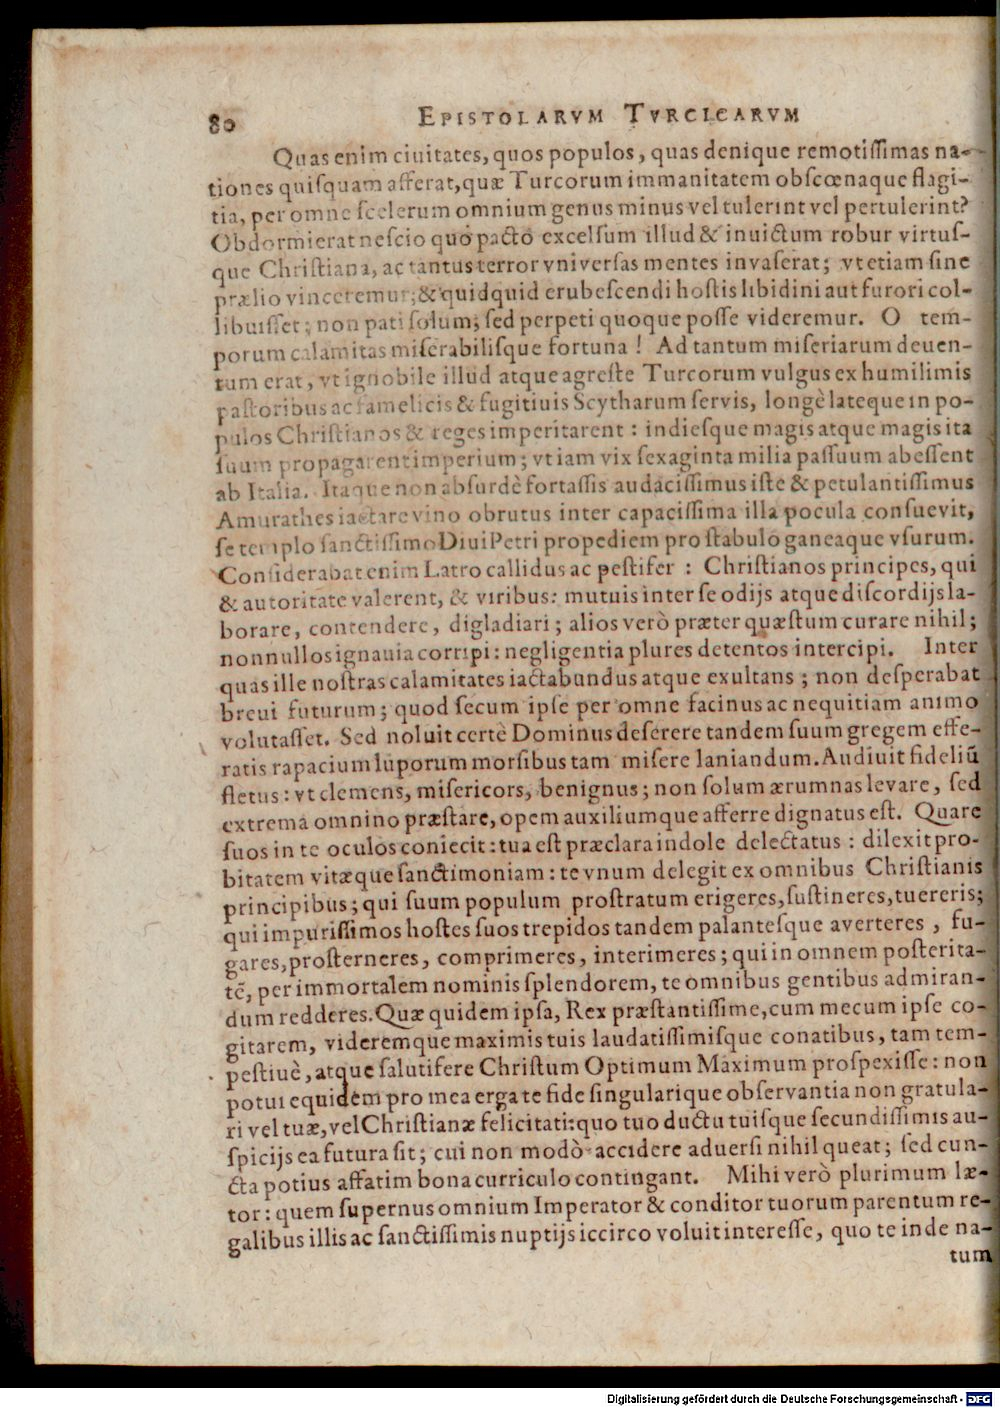 80 EPISTOLARVM TVRCICARVM
Quas enim ciuitates, quos populos, quas denique remotiſſimas na-
tiones quiſquam afferat, quæ Turcorum immanitatem obſcœnaque flagi-
tia, per omne ſcelerum omnium genus minus vel tulerint vel pertulerint?
Obdormierat neſcio quo pacto excelſum illud & inuictum robur virtuſ-
que Chriſtiana, ac tantus terror vniverſas mentes invaſerat; vt etiam ſine
prælio vinceremur; & quidquid erubeſcendi hoſtis libidini aut furori col-
libuiſſet; non pati ſolum; ſed perpeti quoque poſſe videremur. O tem-
porum calamitas miſerabiliſque fortuna! Ad tantum miſeriarum deuen-
tum erat, vt ignobile illud atque agreſte Turcorum vulgus ex humilimis
paſtoribus ac famelicis & fugitiuis Scytharum ſervis, longè lateque in po-
pulos Chriſtianos & reges imperitarent: indieſque magis atque magis ita
ſuum propagarent imperium; vt iam vix ſexaginta milia paſſuum abeſſent
ab Italia. Itaque non abſurdè fortaſſis audaciſſimus iſte & petulantiſſimus
Amurathes iactare vino obrutus inter capaciſſima illa pocula conſuevit,
ſe templo ſanctiſſimo Diui Petri propediem pro ſtabulo ganeaque vſurum.
Conſiderabat enim Latro callidus ac peſtifer: Chriſtianos principes, qui
& autoritate valerent, & viribus: mutuis inter ſe odijs atque diſcordijs la-
borare, contendere, digladiari; alios verò præter quæſtum curare nihil;
nonnullos ignauia corripi: negligentia plures detentos intercipi. Inter
quas ille noſtras calamitates iactabundus atque exultans; non deſperabat
breui futurum; quod ſecum ipſe per omne facinus ac nequitiam animo
volutaſſet. Sed noluit certè Dominus deſerere tandem ſuum gregem effe-
ratis rapacium luporum morſibus tam miſere laniandum. Audiuit fideliū
fletus: vt clemens, miſericors, benignus; non ſolum ærumnas levare, ſed
extrema omnino præſtare, opem auxiliumque afferre dignatus eſt. Quare
ſuos in te oculos coniecit: tua eſt præclara indole delectatus: dilexit pro-
bitatem vitæque ſanctimoniam: te vnum delegit ex omnibus Chriſtianis
principibus; qui ſuum populum proſtratum erigeres, ſuſtineres, tuereris;
qui impuriſſimos hoſtes ſuos trepidos tandem palanteſque averteres, fu-
gares, proſterneres, comprimeres, interimeres; qui in omnem poſterita-
tē, per immortalem nominis ſplendorem, te omnibus gentibus admiran-
dum redderes. Quæ quidem ipſa, Rex præſtantiſſime, cum mecum ipſe co-
gitarem, videremque maximis tuis laudatiſſimiſque conatibus, tam tem-
peſtiuè, atque ſalutifere Chriſtum Optimum Maximum proſpexiſſe: non
potui equidem pro mea erga te fide ſingularique obſervantia non gratula-
ri vel tuæ, vel Chriſtianæ felicitati: quo tuo ductu tuiſque ſecundiſſimis au-
ſpicijs ea futura ſit; cui non modò accidere aduerſi nihil queat; ſed cun-
cta potius affatim bona curriculo contingant. Mihi verò plurimum læ-
tor: quem ſupernus omnium Imperator & conditor tuorum parentum re-
galibus illis ac ſanctiſſimis nuptijs iccirco voluit intereſſe, quo te inde na-
tum
Digitalisierung gefördert durch die Deutsche Forschungsgemeinschaft - DFG